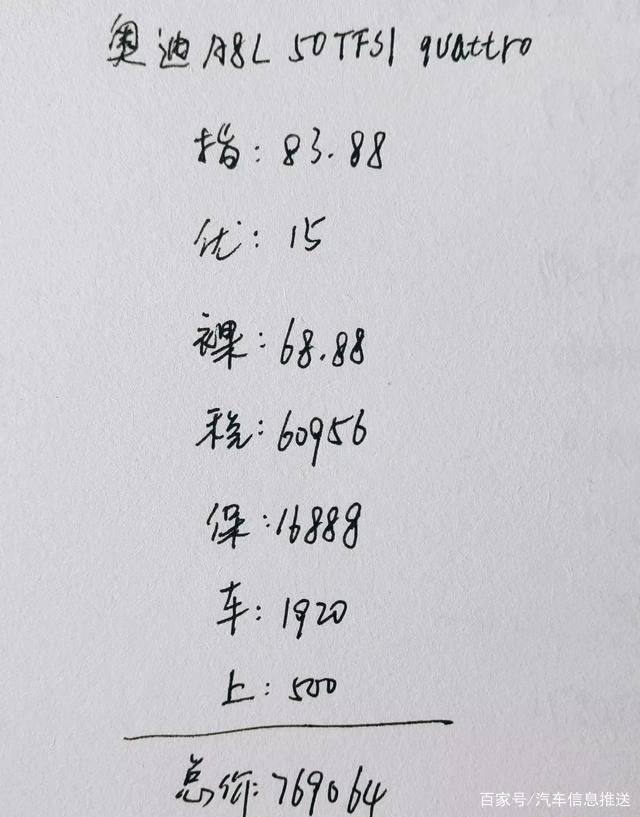 奥迪 A8L 50TFSI quattro
指: 83.88
优: 15
裸: 68.88
税: 60956
保: 16888
车: 1920
上: 500
总价: 769064
百家号/汽车信息推送